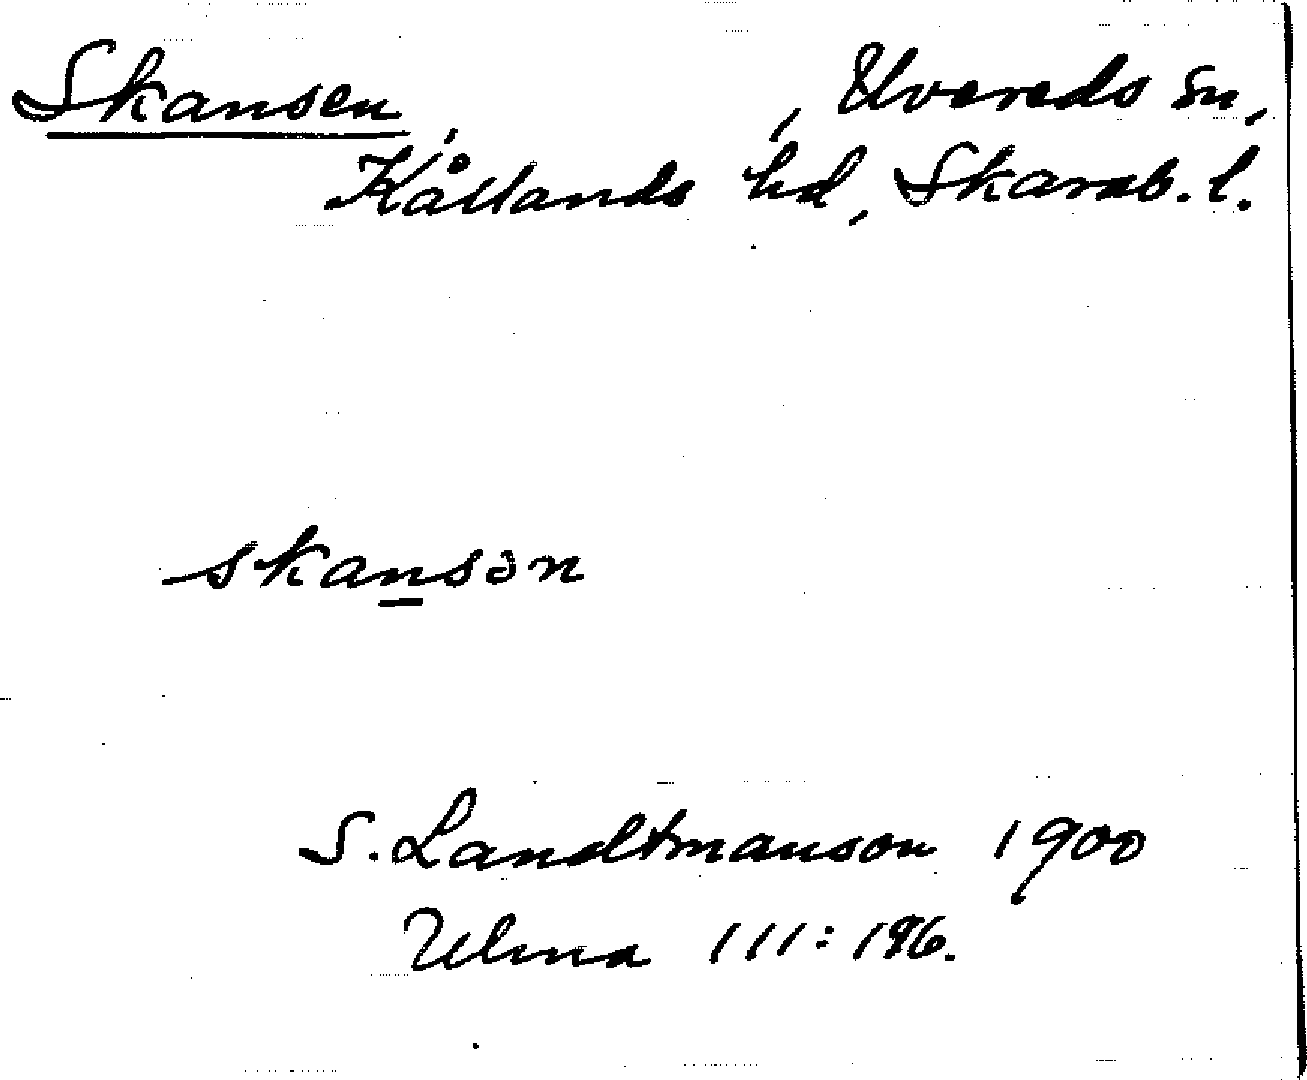 Skansen, , Uvereds sn,
Kållands hd, Skarab. l.
skansən
S. Landtmanson 1900
Ulma 111: 196.